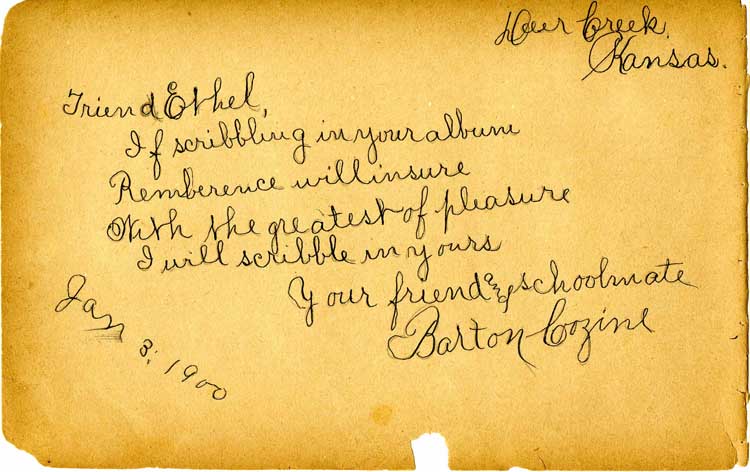 Deer Creek,
Kansas.
Friend Ethel,
If scribbling in your album
Remberence will insure
With the greatest of pleasure
I will scribble in yours
Your friend & schoolmate
Barton Cozine
Jan 3, 1900